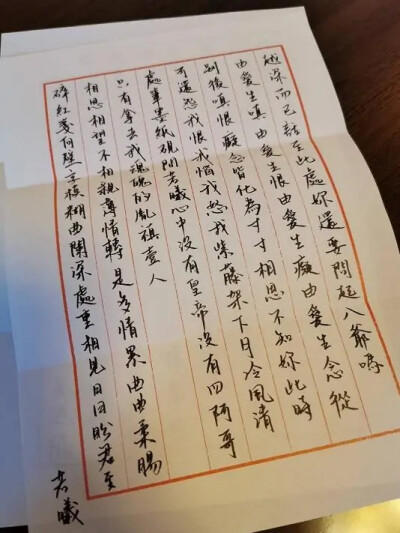 越深而已話至此處妳還要問起八爺嗎
由愛生嗔由愛生恨由愛生癡由愛生念從
別後嗔恨癡念皆化為寸寸相思不知妳此時
可還怨我恨我惱我怒我紫藤架下月冷風清
處筆墨紙硯間若曦心中沒有皇帝沒有四阿哥
只有拿去我魂魄的胤禛壹人
相思相望不相親薄情轉是多情累曲曲柔腸
碎紅箋向壁字模糊曲闌深處重相見日日盼君至
若曦